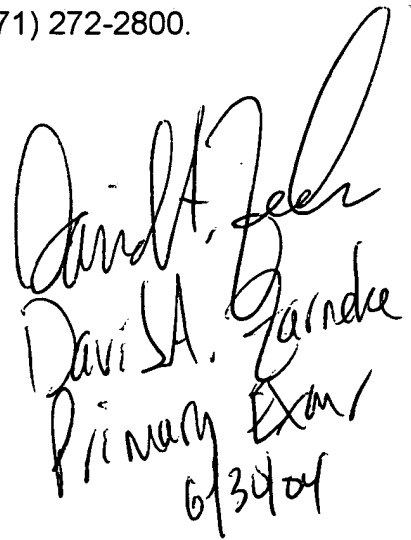 71) 272-2800.
David A. Zarneke
David A. Zarneke
Primary Exmr
6/30/04